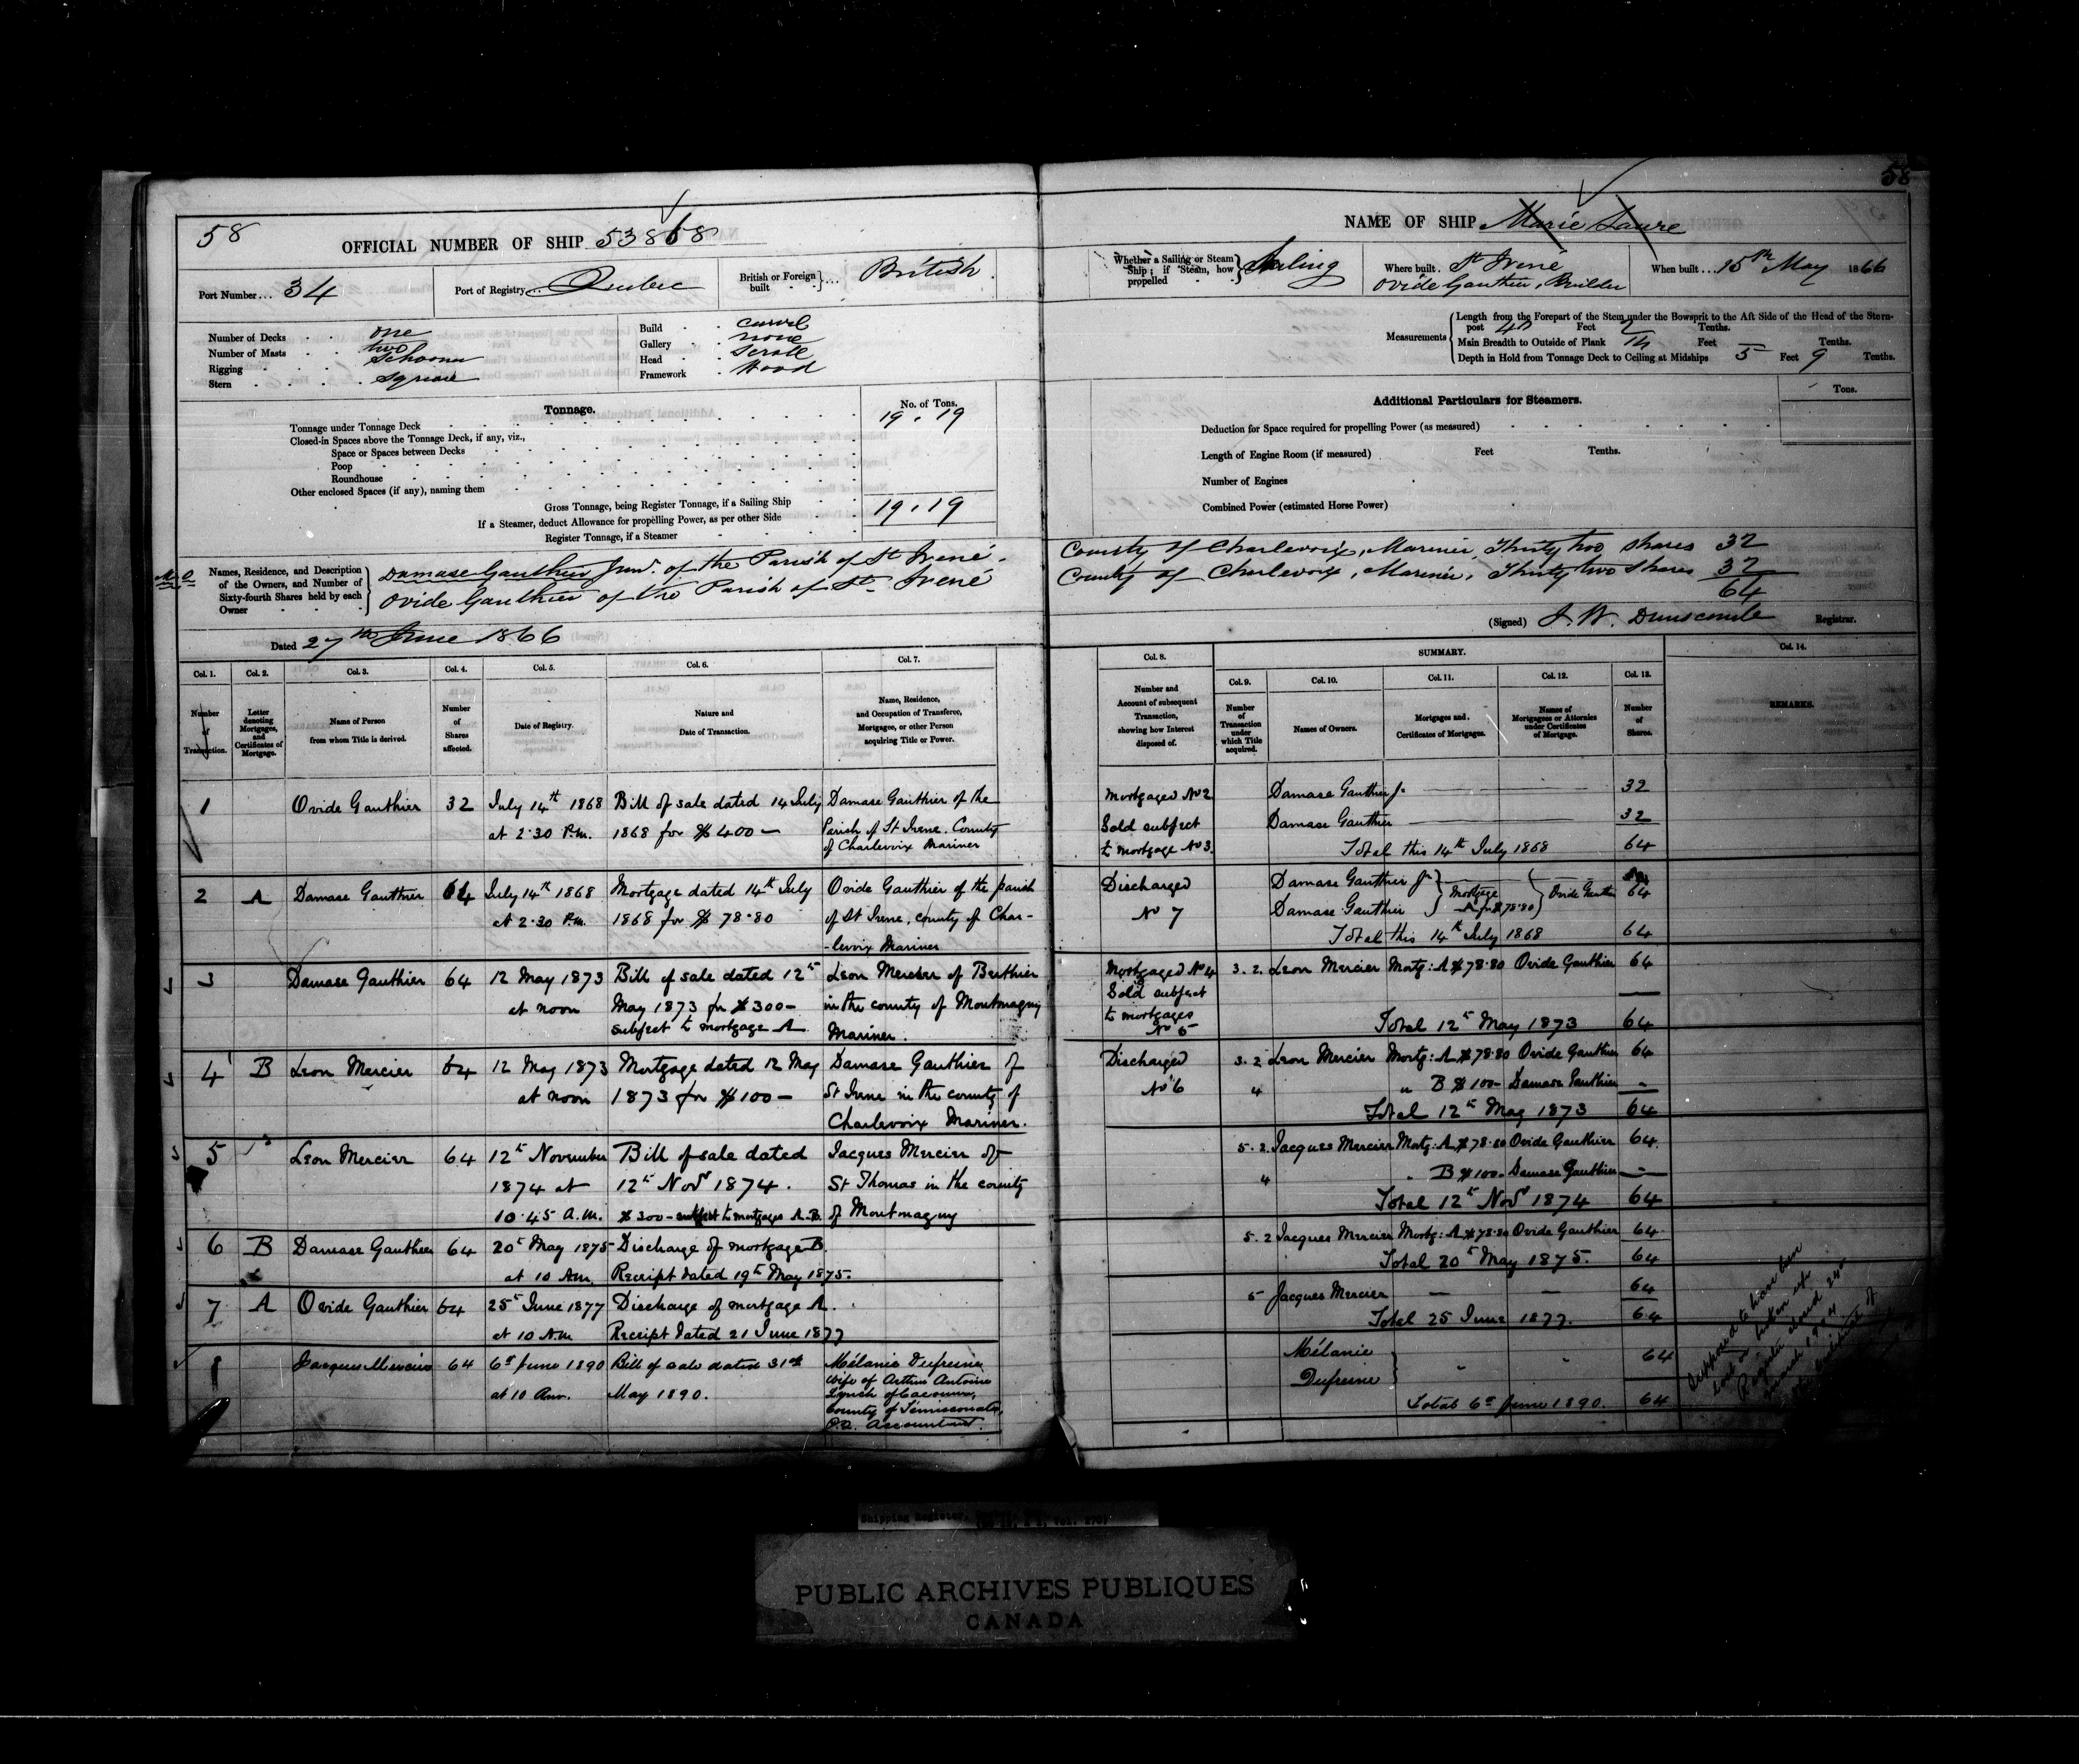 58
58
OFFICIAL NUMBER OF SHIP 53868
NAME OF SHIP Marie Laure
Port Number... 34
Port of Registry... Quebec
British or Foreign built } ... British
Whether a Sailing or Steam Ship; if Steam, how propelled } Sailing
Where built. St Irené
Ovide Gauthier, Builder
When built... 15th May 1866
Number of Decks one
Number of Masts two
Rigging Schooner
Stern square
Build carvel
Gallery none
Head scroll
Framework Wood
Measurements
Length from the Forepart of the Stem under the Bowsprit to the Aft Side of the Head of the Stern-
post Feet 2 Tenths.
Main Breadth to Outside of Plank Feet — Tenths.
Depth in Hold from Tonnage Deck to Ceiling at Midships 5 Feet 9 Tenths.
Tonnage.
No. of Tons.
Tonnage under Tonnage Deck 19.19
Closed-in Spaces above the Tonnage Deck, if any, viz.,
Space or Spaces between Decks
Poop
Roundhouse
Other enclosed Spaces (if any), naming them
Gross Tonnage, being Register Tonnage, if a Sailing Ship 19.19
If a Steamer, deduct Allowance for propelling Power, as per other Side
Register Tonnage, if a Steamer
Additional Particulars for Steamers.
Tons.
Deduction for Space required for propelling Power (as measured)
Length of Engine Room (if measured) Feet Tenths.
Number of Engines
Combined Power (estimated Horse Power)
Names, Residence, and Description of the Owners, and Number of Sixty-fourth Shares held by each Owner
Damase Gauthier Junr. of the Parish of St Irené County of Charlevoix, Mariner, Thirty two shares 32
Ovide Gauthier of the Parish of St Irené County of Charlevoix, Mariner, Thirty two shares 32
64
Dated 27th June 1866
(Signed) J. W. Dunscomb Registrar.
Col. 1. Col. 2. Col. 3. Col. 4. Col. 5. Col. 6. Col. 7.
Col. 8. SUMMARY. Col. 14.
Col. 9. Col. 10. Col. 11. Col. 12. Col. 13.
Number of Transaction.
Letter denoting Mortgages, and Certificates of Mortgage.
Name of Person from whom Title is derived.
Number of Shares affected.
Date of Registry.
Nature and Date of Transaction.
Name, Residence, and Occupation of Transferee, Mortgagee, or other Person acquiring Title or Power.
Number and Account of subsequent Transaction, showing how Interest disposed of.
Number of Transaction under which Title acquired.
Names of Owners.
Mortgages and Certificates of Mortgages.
Names of Mortgagees or Attornies under Certificates of Mortgage.
Number of Shares.
REMARKS.
1 Ovide Gauthier 32 July 14th 1868 Bill of sale dated 14 July Damase Gauthier of the
at 2.30 P.m. 1868 for $400— Parish of St Irene. County
of Charlevoix Mariner
Mortgaged No 2 Damase Gauthier Jr 32
Sold subject Damase Gauthier 32
to mortgage No 3. Total this 14th July 1868 64
2 A Damase Gauthier 64 July 14th 1868 Mortgage dated 14th July Ovide Gauthier of the parish
at 2.30 P.m. 1868 for $78.80 of St Irene, county of Char-
-levoix Mariner
Discharged Damase Gauthier Jr } Mortgage } Ovide Gauthier 64
No 7 Damase Gauthier } A for $78.80 }
Total this 14th July 1868 64
3 Damase Gauthier 64 12 May 1873 Bill of sale dated 12th Leon Mercier of Berthier
at noon May 1873 for $300— in the county of Montmagny
subject to mortgage A Mariner.
Mortgaged No 4 3.2. Leon Mercier Mortg: A $78.80 Ovide Gauthier 64
Sold subject
to mortgages
No 5 Total 12th May 1873 64
4 B Leon Mercier 64 12 May 1873 Mortgage dated 12 May Damase Gauthier of
at noon 1873 for $100— St Irene in the county of
Charlevoix Mariner.
Discharged 3.2 Leon Mercier Mortg: A $78.80 Ovide Gauthier 64
No 6 4 " B $100— Damase Gauthier —
Total 12th May 1873 64
5 Leon Mercier 64 12th November Bill of sale dated Jacques Mercier of
1874 at 12th Novr 1874. St Thomas in the county
10.45 A.M. $300—subject to mortgages A.B. of Montmagny
5.2. Jacques Mercier Mortg: A $78.80 Ovide Gauthier 64
4 " B $100— Damase Gauthier —
Total 12th Novr 1874 64
6 B Damase Gauthier 64 20th May 1875 Discharge of mortgage B.
at 10 Am. Receipt dated 19th May 1875.
5.2 Jacques Mercier Mortg: A $78.80 Ovide Gauthier 64
Total 20th May 1875. 64
7 A Ovide Gauthier 64 25th June 1877 Discharge of mortgage A.
at 10 Am Receipt dated 21 June 1877
5 Jacques Mercier — — 64
Total 25 June 1877. 64
Jacques Mercier 64 6th June 1890 Bill of sale dated 31st Mélanie Dufresne
at 10 Am. May 1890. wife of Arthur Antoine
Lynch of Cacouna,
County of Temiscouata,
P.Q. Accountant.
Mélanie
Dufresne } " " 64
Total 6th June 1890. 64
Supposed to have been
lost or broken up
Register closed 24th
March
Shipping Register,
PUBLIC ARCHIVES PUBLIQUES
CANADA